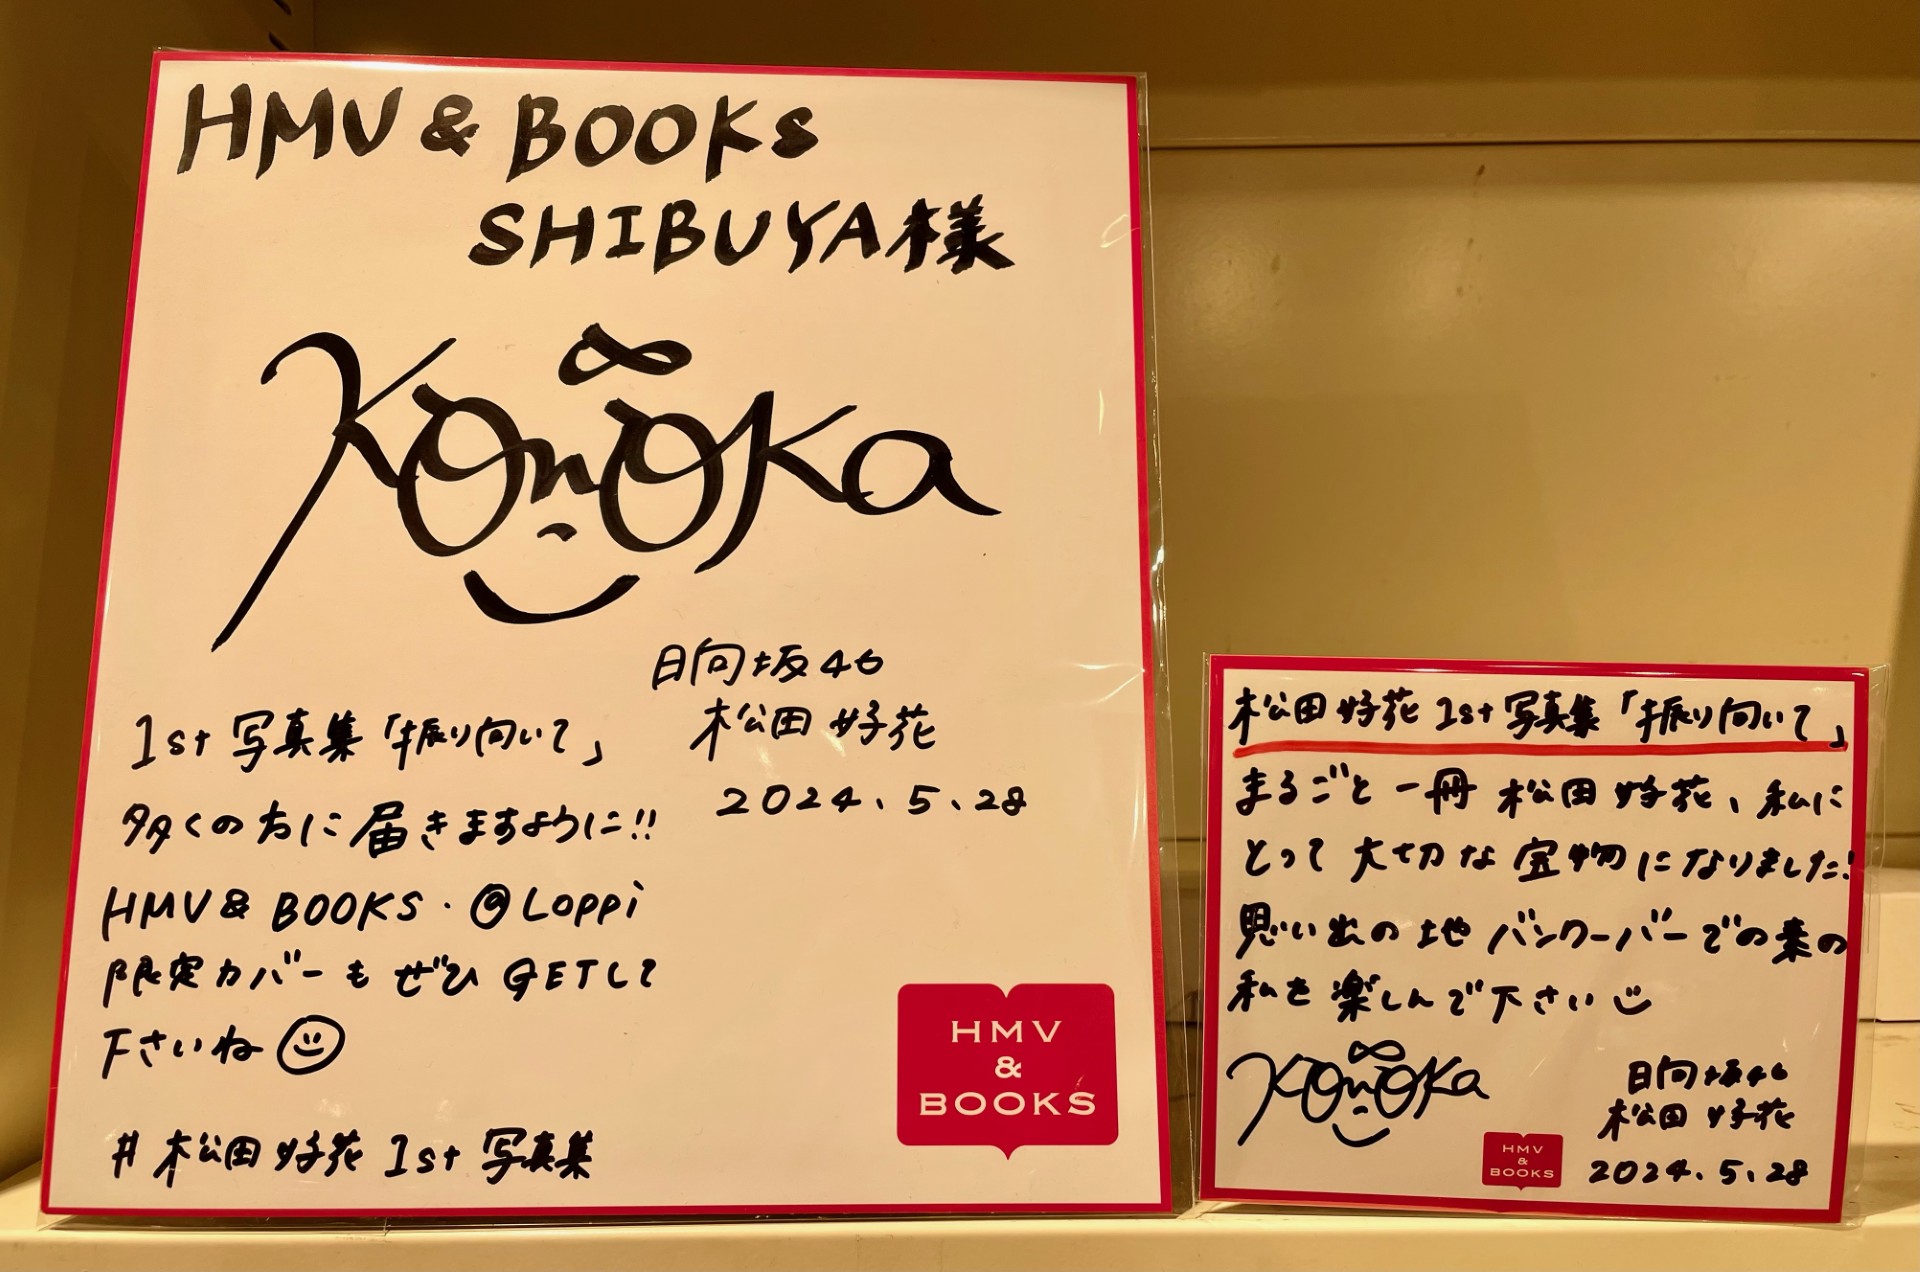 HMV & BOOKS
SHIBUYA様
Konoka
日向坂46
松田好花
2024.5.28
1st 写真集「振り向いて」
多くの方に届きますように!!
HMV & BOOKS・@Loppi
限定カバーもぜひGETして
下さいね
#松田好花 1st 写真集
HMV
&
BOOKS
松田好花 1st 写真集「振り向いて」
まるごと一冊 松田好花、私に
とって大切な宝物になりました!
思い出の地 バンクーバーでの素の
私を楽しんで下さい
Konoka
日向坂46
松田好花
2024.5.28
HMV
&
BOOKS